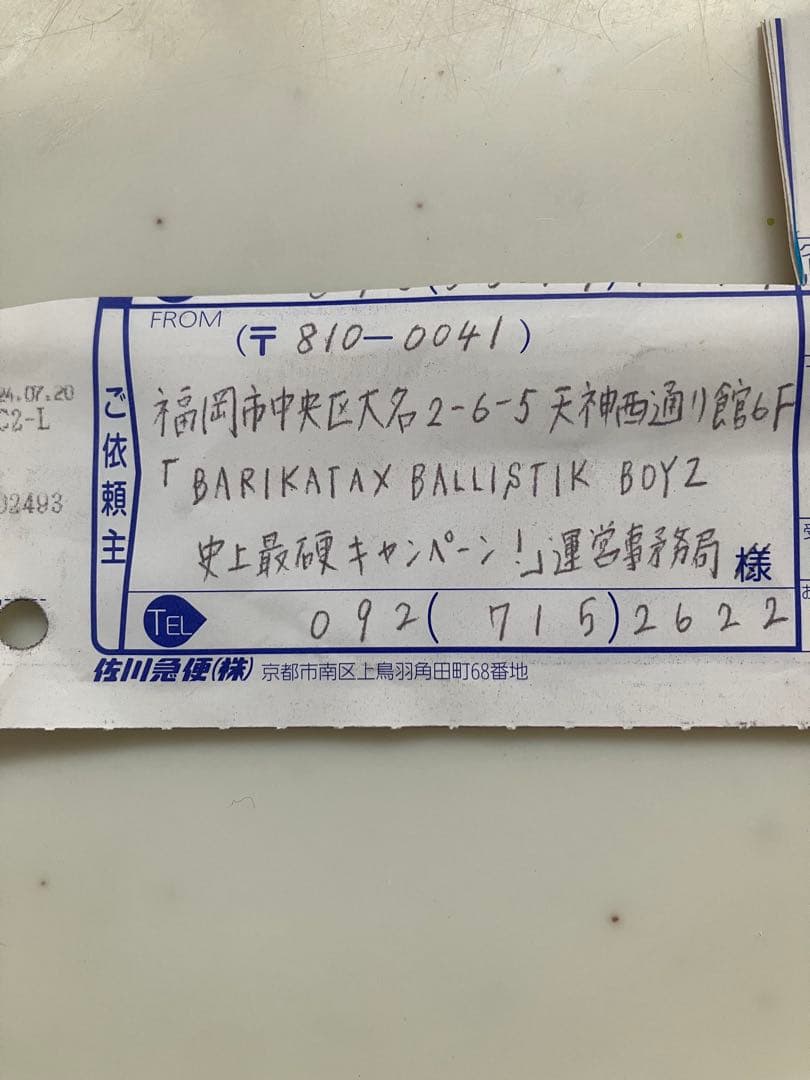 FROM
(〒810-0041)
福岡市中央区大名2-6-5 天神西通り館6F
「BARIKATAX BALLISTIK BOYZ
史上最硬キャンペーン!」運営事務局 様
ご依頼主
TEL 092(715)2622
佐川急便(株) 京都市南区上鳥羽角田町68番地
24.07.20
C2-L
02493